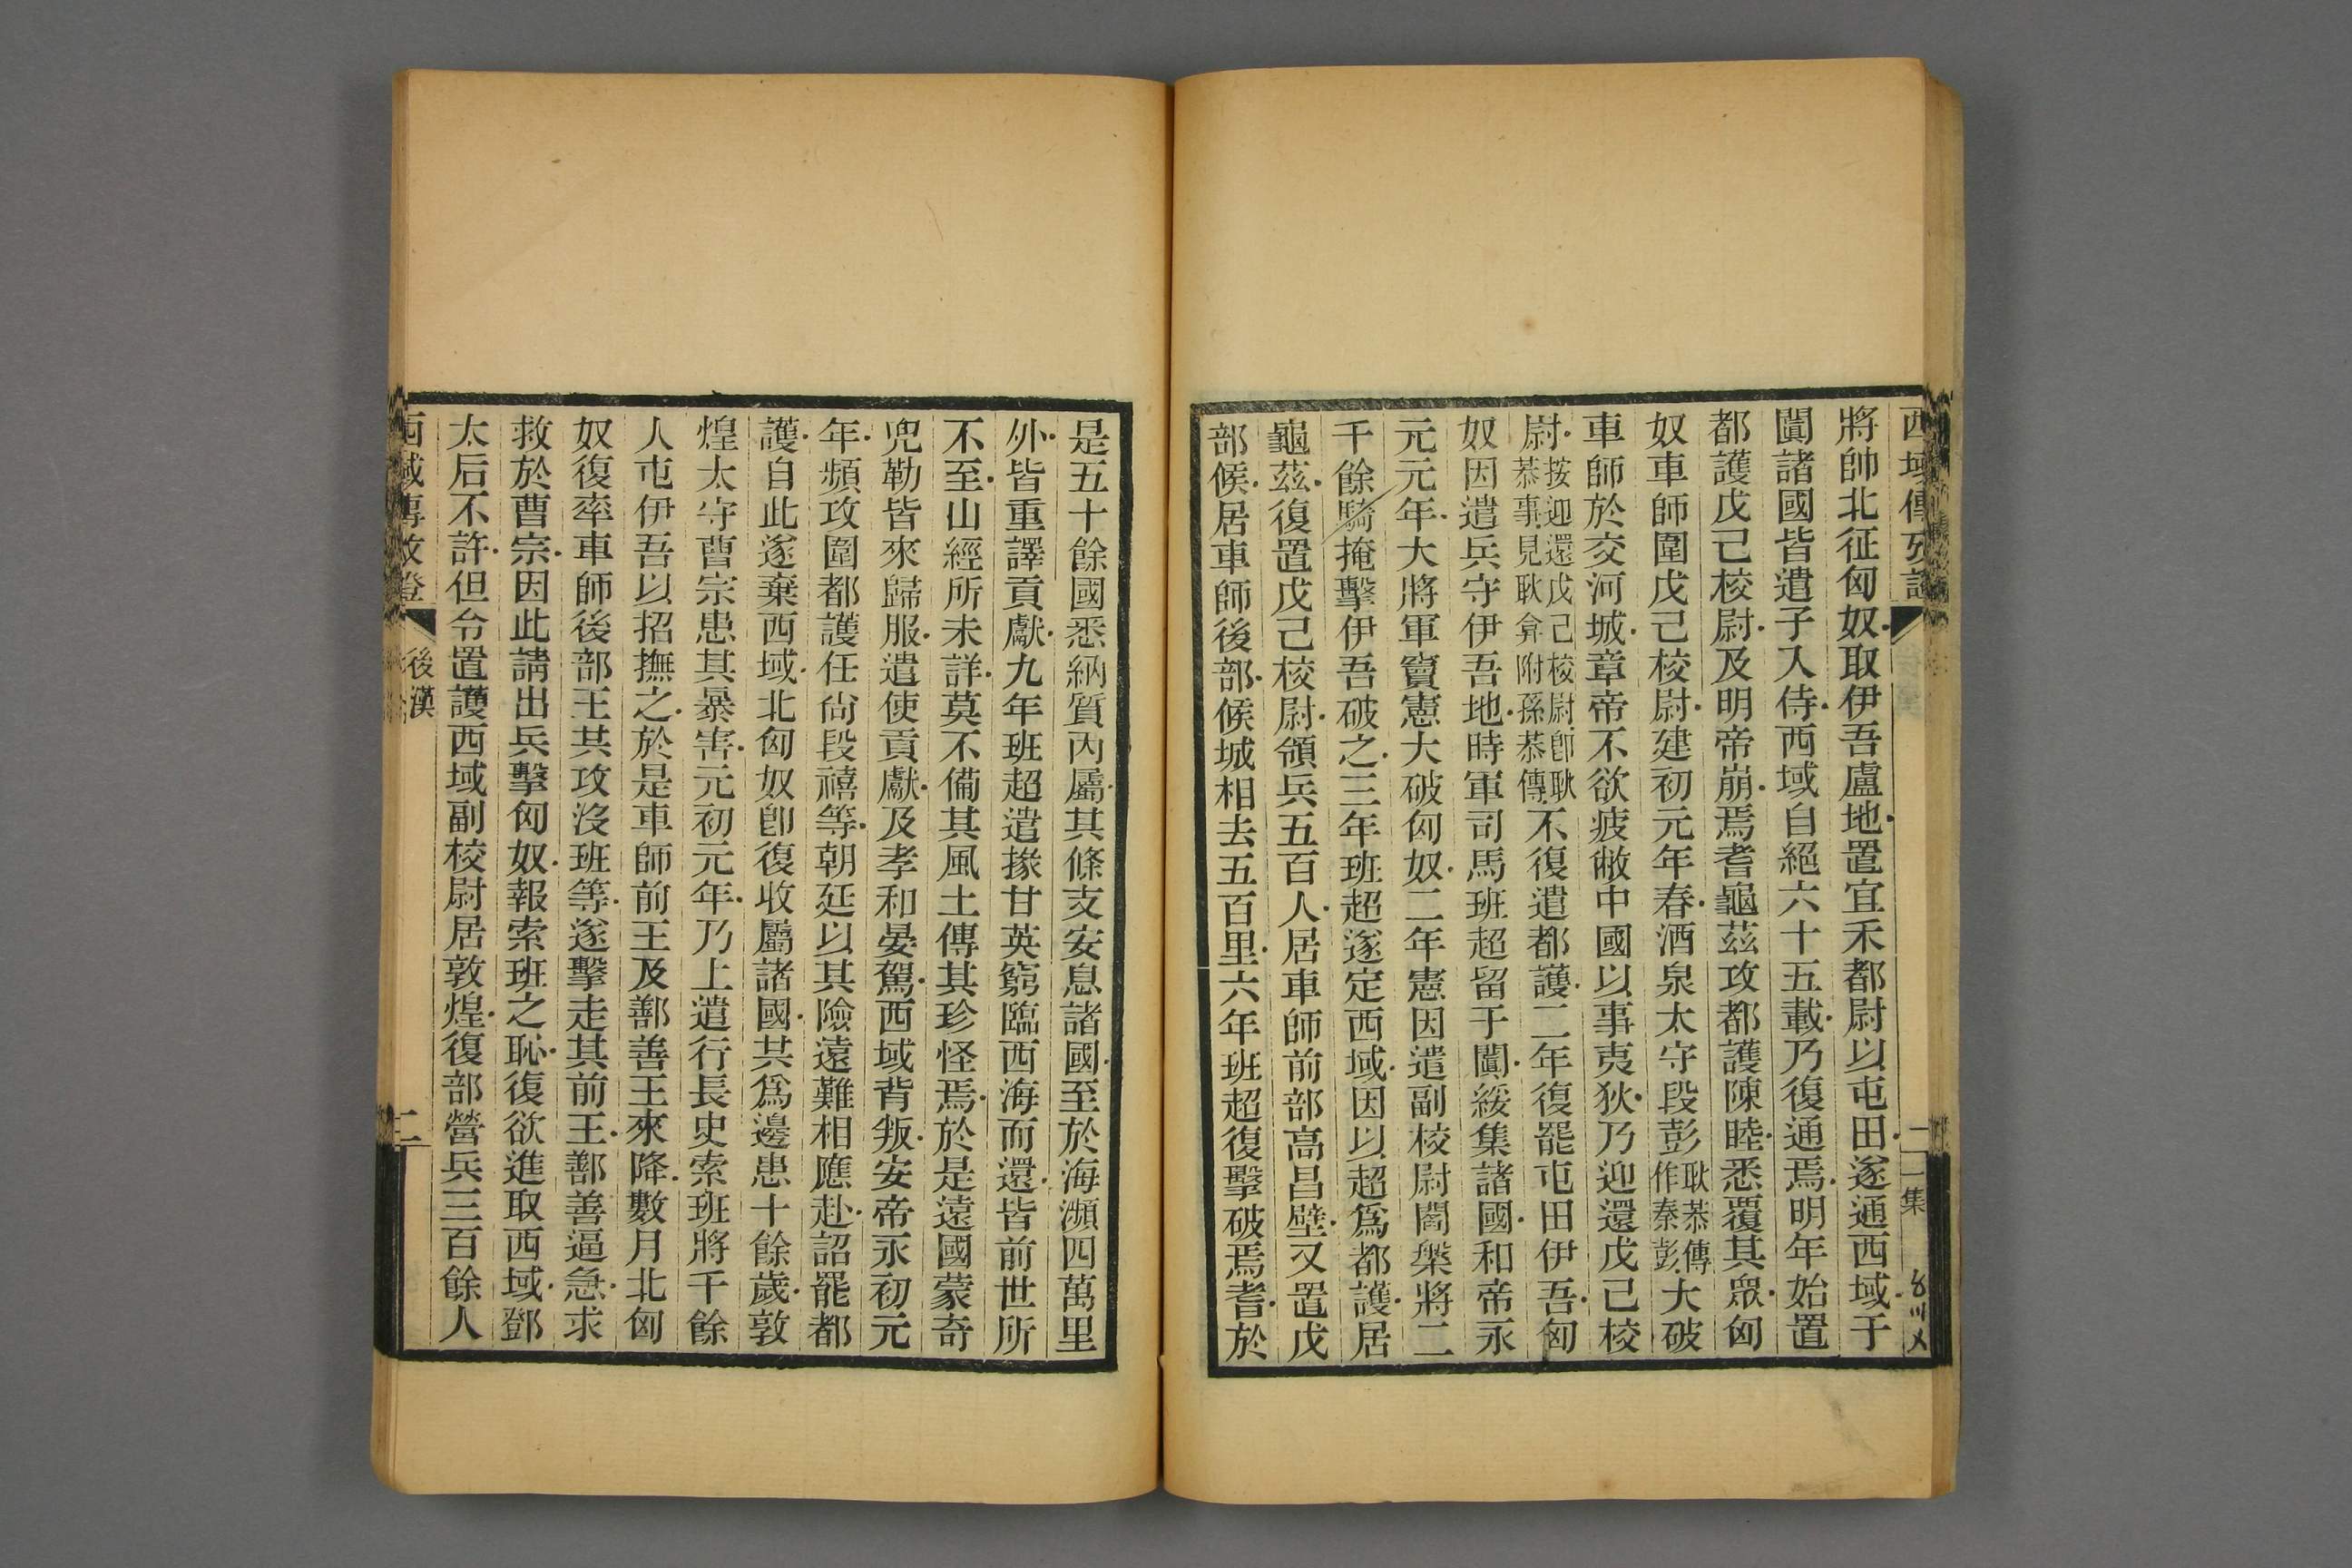 西域傳攷證
二集
將帥北征匈奴取伊吾盧地置宜禾都尉以屯田遂通西域于
闐諸國皆遣子入侍西域自絕六十五載乃復通焉明年始置
都護戊己校尉及明帝崩焉耆龜茲攻都護陳睦悉覆其眾匈
奴車師圍戊己校尉建初元年春酒泉太守段彭耿恭傳作秦彭大破
車師於交河城章帝不欲疲敝中國以事夷狄乃迎還戊己校
尉按迎還戊己校尉卽耿恭事見耿弇附孫恭傳不復遣都護二年復罷屯田伊吾匈
奴因遣兵守伊吾地時軍司馬班超留于闐綏集諸國和帝永
元元年大將軍竇憲大破匈奴二年憲因遣副校尉閻槃將二
千餘騎掩擊伊吾破之三年班超遂定西域因以超爲都護居
龜茲復置戊己校尉領兵五百人居車師前部高昌壁又置戊
部候居車師後部候城相去五百里六年班超復擊破焉耆於
是五十餘國悉納質內屬其條支安息諸國至於海瀕四萬里
外皆重譯貢獻九年班超遣掾甘英窮臨西海而還皆前世所
不至山經所未詳莫不備其風土傳其珍怪焉於是遠國蒙奇
兜勒皆來歸服遣使貢獻及孝和晏駕西域背叛安帝永初元
年頻攻圍都護任尙段禧等朝廷以其險遠難相應赴詔罷都
護自此遂棄西域北匈奴卽復收屬諸國共爲邊患十餘歲敦
煌太守曹宗患其暴害元初元年乃上遣行長史索班將千餘
人屯伊吾以招撫之於是車師前王及鄯善王來降數月北匈
奴復率車師後部王共攻沒班等遂擊走其前王鄯善逼急求
救於曹宗因此請出兵擊匈奴報索班之恥復欲進取西域鄧
太后不許但令置護西域副校尉居敦煌復部營兵三百餘人
西域傳攷證
後漢
二